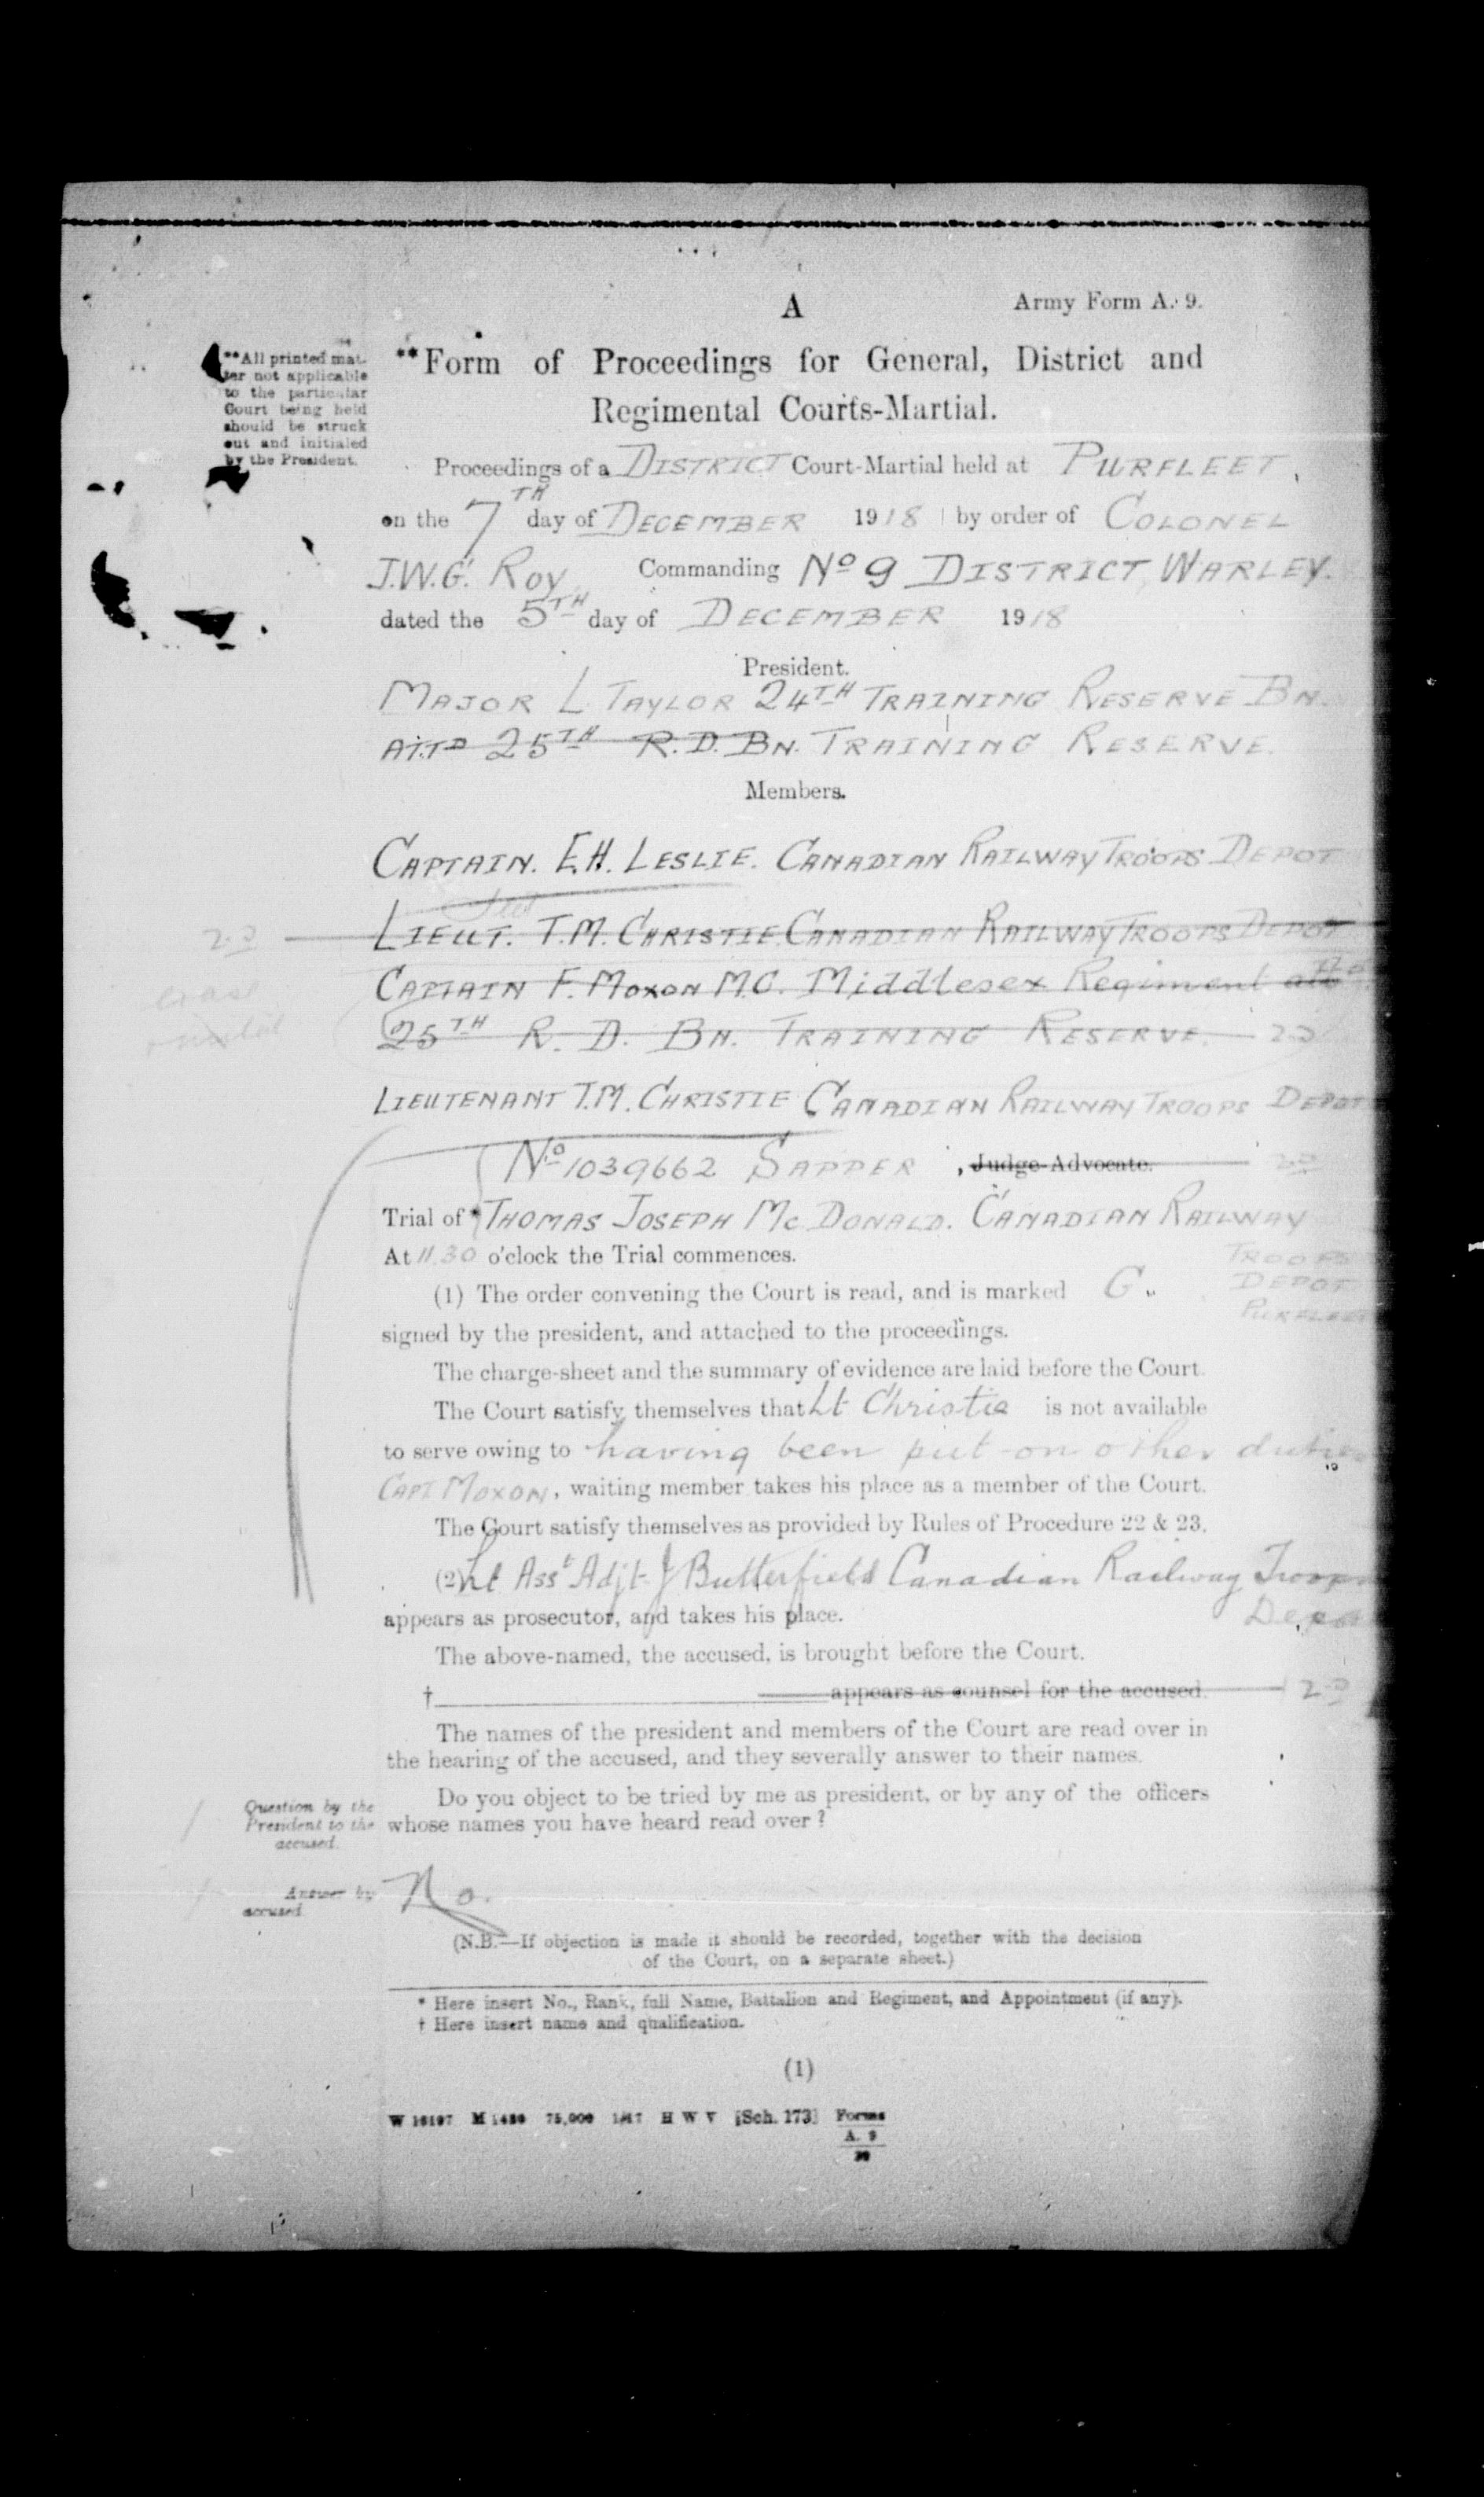 A
Army Form A. 9.
**All printed mat-
ter not applicable
to the particular
Court being held
should be struck
out and initialed
by the President.
**Form of Proceedings for General, District and
Regimental Courts-Martial.
Proceedings of a DISTRICT Court-Martial held at PURFLEET,
on the 7TH day of DECEMBER 1918 by order of COLONEL
J.W.G. ROY Commanding No 9 DISTRICT, WARLEY.
dated the 5TH day of DECEMBER 1918
President.
MAJOR L TAYLOR 24TH TRAINING RESERVE BN.
ATTD 25TH R.D. BN. TRAINING RESERVE.
Members.
CAPTAIN. E.H. LESLIE. CANADIAN RAILWAY TROOPS DEPOT
LIEUT. T.M. CHRISTIE. CANADIAN RAILWAY TROOPS DEPOT
CAPTAIN F. MOXON M.C. Middlesex Regiment attd
25TH R. D. BN. TRAINING RESERVE.
LIEUTENANT T.M. CHRISTIE CANADIAN RAILWAY TROOPS DEPOT
No 1039662 SAPPER , Judge-Advocate.
Trial of * THOMAS JOSEPH Mc DONALD. CANADIAN RAILWAY
TROOPS
DEPOT
PURFLEET
At 11.30 o'clock the Trial commences.
(1) The order convening the Court is read, and is marked G.
signed by the president, and attached to the proceedings.
The charge-sheet and the summary of evidence are laid before the Court.
The Court satisfy themselves that Lt Christie is not available
to serve owing to having been put on other duties
CAPT MOXON, waiting member takes his place as a member of the Court.
The Court satisfy themselves as provided by Rules of Procedure 22 & 23.
(2) Lt Asst Adjt J Butterfield Canadian Railway Troops
Depot
appears as prosecutor, and takes his place.
The above-named, the accused, is brought before the Court.
† appears as counsel for the accused.
The names of the president and members of the Court are read over in
the hearing of the accused, and they severally answer to their names.
Question by the
President to the
accused.
Do you object to be tried by me as president, or by any of the officers
whose names you have heard read over?
Answer by
accused
No.
(N.B.—If objection is made it should be recorded, together with the decision
of the Court, on a separate sheet.)
* Here insert No., Rank, full Name, Battalion and Regiment, and Appointment (if any).
† Here insert name and qualification.
(1)
W 16197 M 1480 75,000 1/17 H W V [Sch. 173] Forms
A. 9